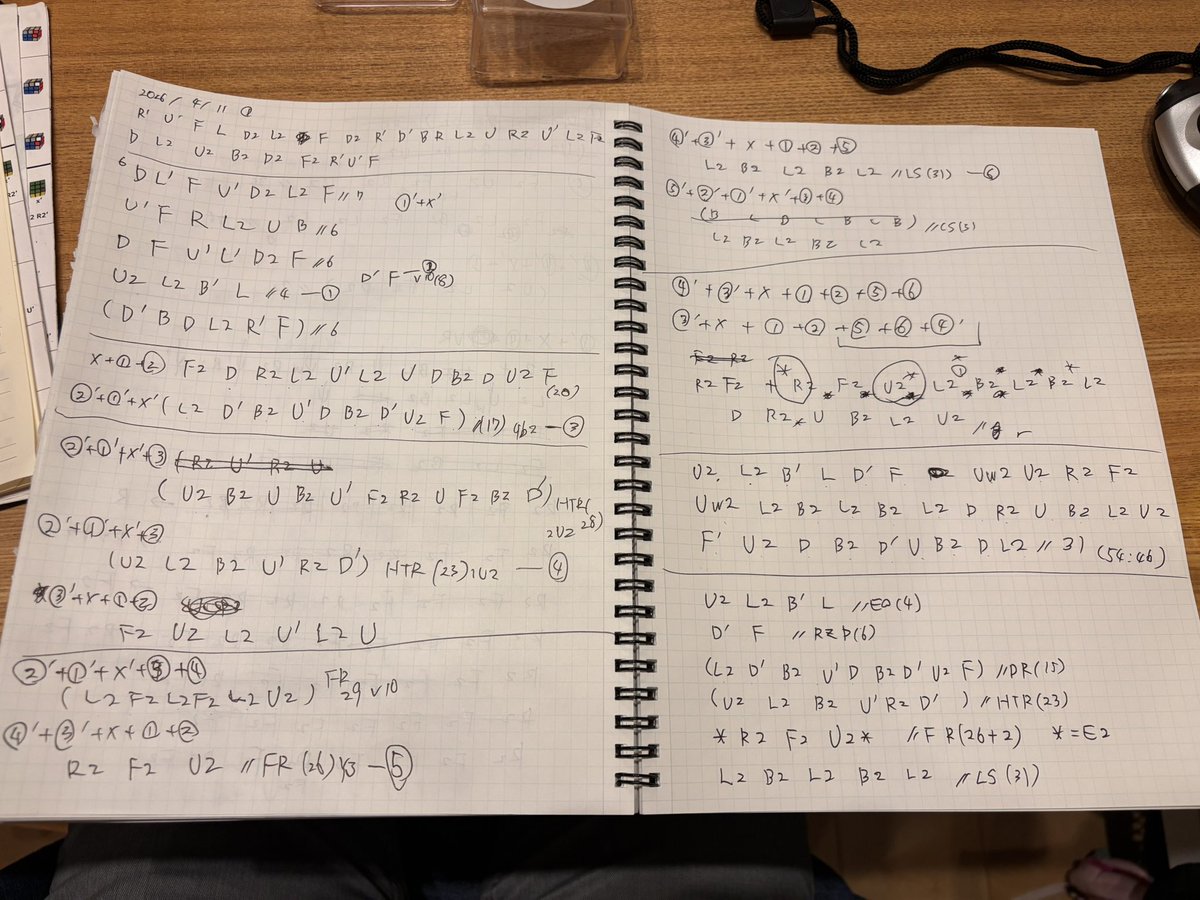 2026 / 4 / 11 ①
R' U' F L D2 L2 F D2 R' D' B R L2 U R2 U' L2 F2
D L2 U2 B2 D2 F2 R' U' F
6
D L' F U' D2 L2 F // 7 ①'+X'
U' F R L2 U B // 6
D F U' L' D2 F // 6
U2 L2 B' L // 4 — ① D' F — ②
v10(8)
(D' B D L2 R' F) // 6
X+①+② F2 D R2 L2 U' L2 U D B2 D U2 F
(20)
②'+①'+X' (L2 D' B2 U' D B2 D' U2 F) (17) 4b2 — ③
②'+①'+X'+③ (R2 U' R2 U
(U2 B2 U B2 U' F2 R2 U F2 B2 D') HTR(
2U2 28)
②'+①'+X'+③
(U2 L2 B2 U' R2 D') HTR(23) 1U2 — ④
③'+X+①+②
F2 U2 L2 U' L2 U
②'+①'+X'+③+④
(L2 F2 L2 F2 L2 U2) FR
29 v10
④'+③'+X+①+②
R2 F2 U2 // FR (26) — ⑤
④'+③'+X+①+②+⑤
L2 B2 L2 B2 L2 // LS(31) — ⑥
⑤'+②'+①'+X'+③+④
(B L D L B L B) // LS(3)
L2 B2 L2 B2 L2
④'+③'+X+①+②+⑤+⑥
③'+X+①+②+⑤+⑥+④'
F2 R2
R2 F2 + * R2 F2 U2 * L2 B2 L2 B2 L2
D R2 * U B2 L2 U2 //
U2 L2 B' L D' F Uw2 U2 R2 F2
Uw2 L2 B2 L2 B2 L2 D R2 U B2 L2 U2
F' U2 D B2 D' U B2 D L2 // 31 (54:46)
U2 L2 B' L // EO(4)
D' F // RZP(6)
(L2 D' B2 U' D B2 D' U2 F) // DR(15)
(U2 L2 B2 U' R2 D' ) // HTR(23)
* R2 F2 U2 * // FR(26+2) * = E2
L2 B2 L2 B2 L2 // LS(31)